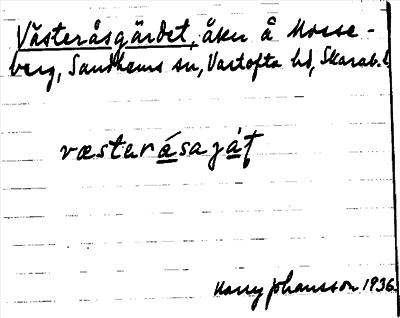 Västeråsgärdet, åker å Mosse-
berg, Sandhems sn, Vartofta hd, Skarab. l
væsterásaját
Harry Johansson 1936.